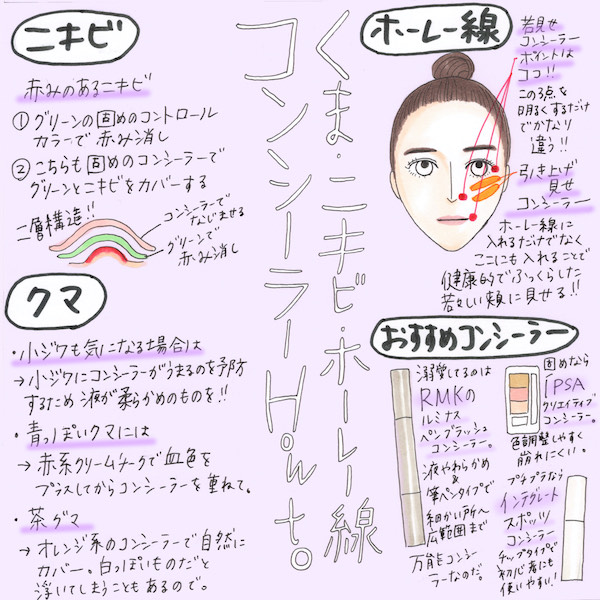 くま・ニキビ・ホーレー線
コンシーラーHowto。
ニキビ
赤みのあるニキビ
①グリーンの固めのコントロール
カラーで赤み消し
②こちらも固めのコンシーラーで
グリーンとニキビをカバーする
二層構造!!
コンシーラーで
なじませる
グリーンで
赤み消し
クマ
・小ジワも気になる場合は
→小ジワにコンシーラーがうまるのを予防
するため液が柔らかめのものを!!
・青っぽいクマには
→赤系クリームチークで血色を
プラスしてからコンシーラーを重ねて。
・茶グマ
→オレンジ系のコンシーラーで自然に
カバー。白っぽいものだと
浮いてしまうこともあるので。
ホーレー線
若見せ
コンシーラー
ポイントは
ココ!!
この3点を
明るくするだけ
でかなり
違う!!
引き上げ
見せ
コンシーラー
ホーレー線に
入れるだけでなく
ここにも入れることで
健康的でふっくらした
若々しい頬に見せる!!
おすすめコンシーラー
溺愛してるのは
RMKの
ルミナス
ペンブラッシュ
コンシーラー。
液やわらかめ
&
筆ペンタイプで
細かい所へ
広範囲まで
万能コンシー
ラーなのだ。
固めなら
「PSA
クリエイティブ
コンシーラー。
色調整しやすく
崩れにくい。
プチプラなら
インテグレート
スポッツ
コンシーラー
チップタイプで
初心者にも
使いやすい!